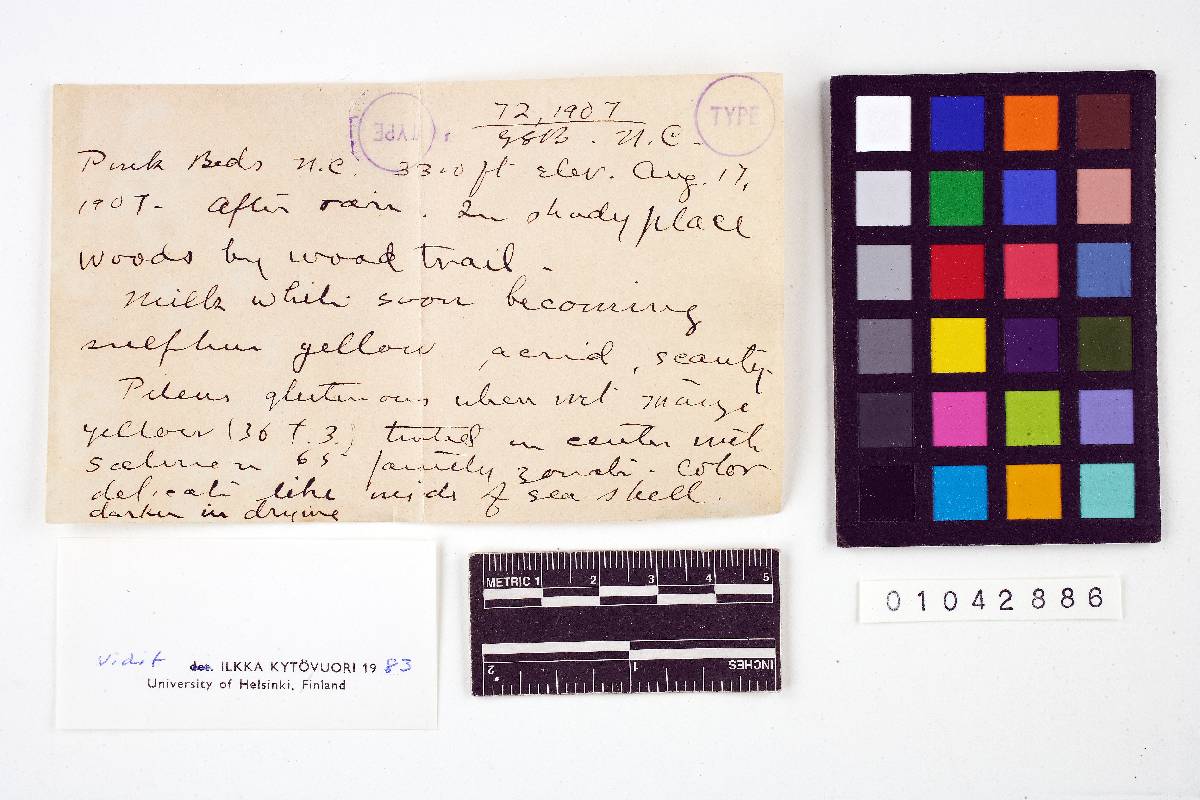 72, 1907
GSB. N.C.
TYPE
TYPE
Pink Beds N.C. 3300 ft elev. Aug. 17,
1907- After rain. In shady place
woods by wood trail.
Milk white soon becoming
sulphur yellow, acrid, scanty.
Pileus glutinous when wet maize
yellow (36 T. 3.) tinted in center with
salmon 65 faintly zonate. Color
delicate like inside of sea shell.
darker in drying
vidit det. ILKKA KYTÖVUORI 1983
University of Helsinki, Finland
METRIC 1 2 3 4 5
2 1 INCHES
01042886